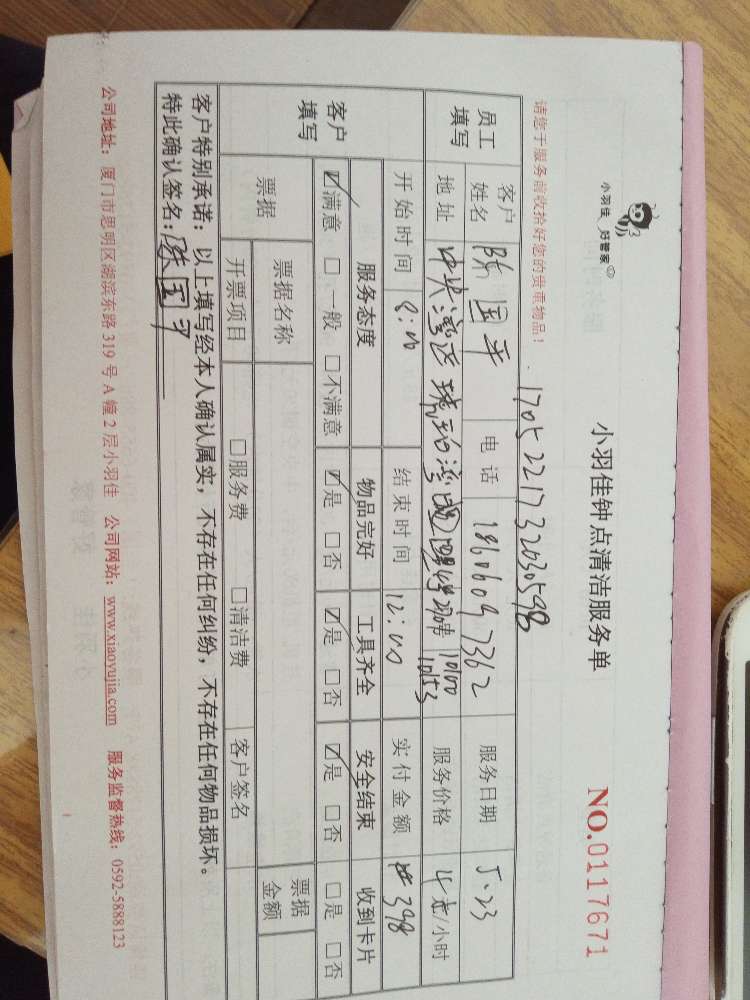 小羽佳 好管家
小羽佳钟点清洁服务单
NO.0117671
请您于服务前收拾好您的贵重物品!
170522173203059B
员工填写 客户姓名 陈国平 电话 18606097362 服务日期 5.23
地址 中央湾区 琥珀湾 服务价格 4 /小时
客户填写 开始时间 8:00 结束时间 12:00 实付金额 398
服务态度 物品完好 工具齐全 安全结束 收到卡片
☑满意 □一般 □不满意 ☑是 □否 ☑是 □否 ☑是 □否 □是 □否
票据 票据名称 票据金额
开票项目 □服务费 □清洁费 客户签名
客户特别承诺:以上填写经本人确认属实,不存在任何纠纷,不存在任何物品损坏。
特此确认签名:陈国平
公司地址:厦门市思明区湖滨东路 319 号 A 幢 2 层小羽佳 公司网站:www.xiaoyujia.com 服务监督热线:0592-5888123